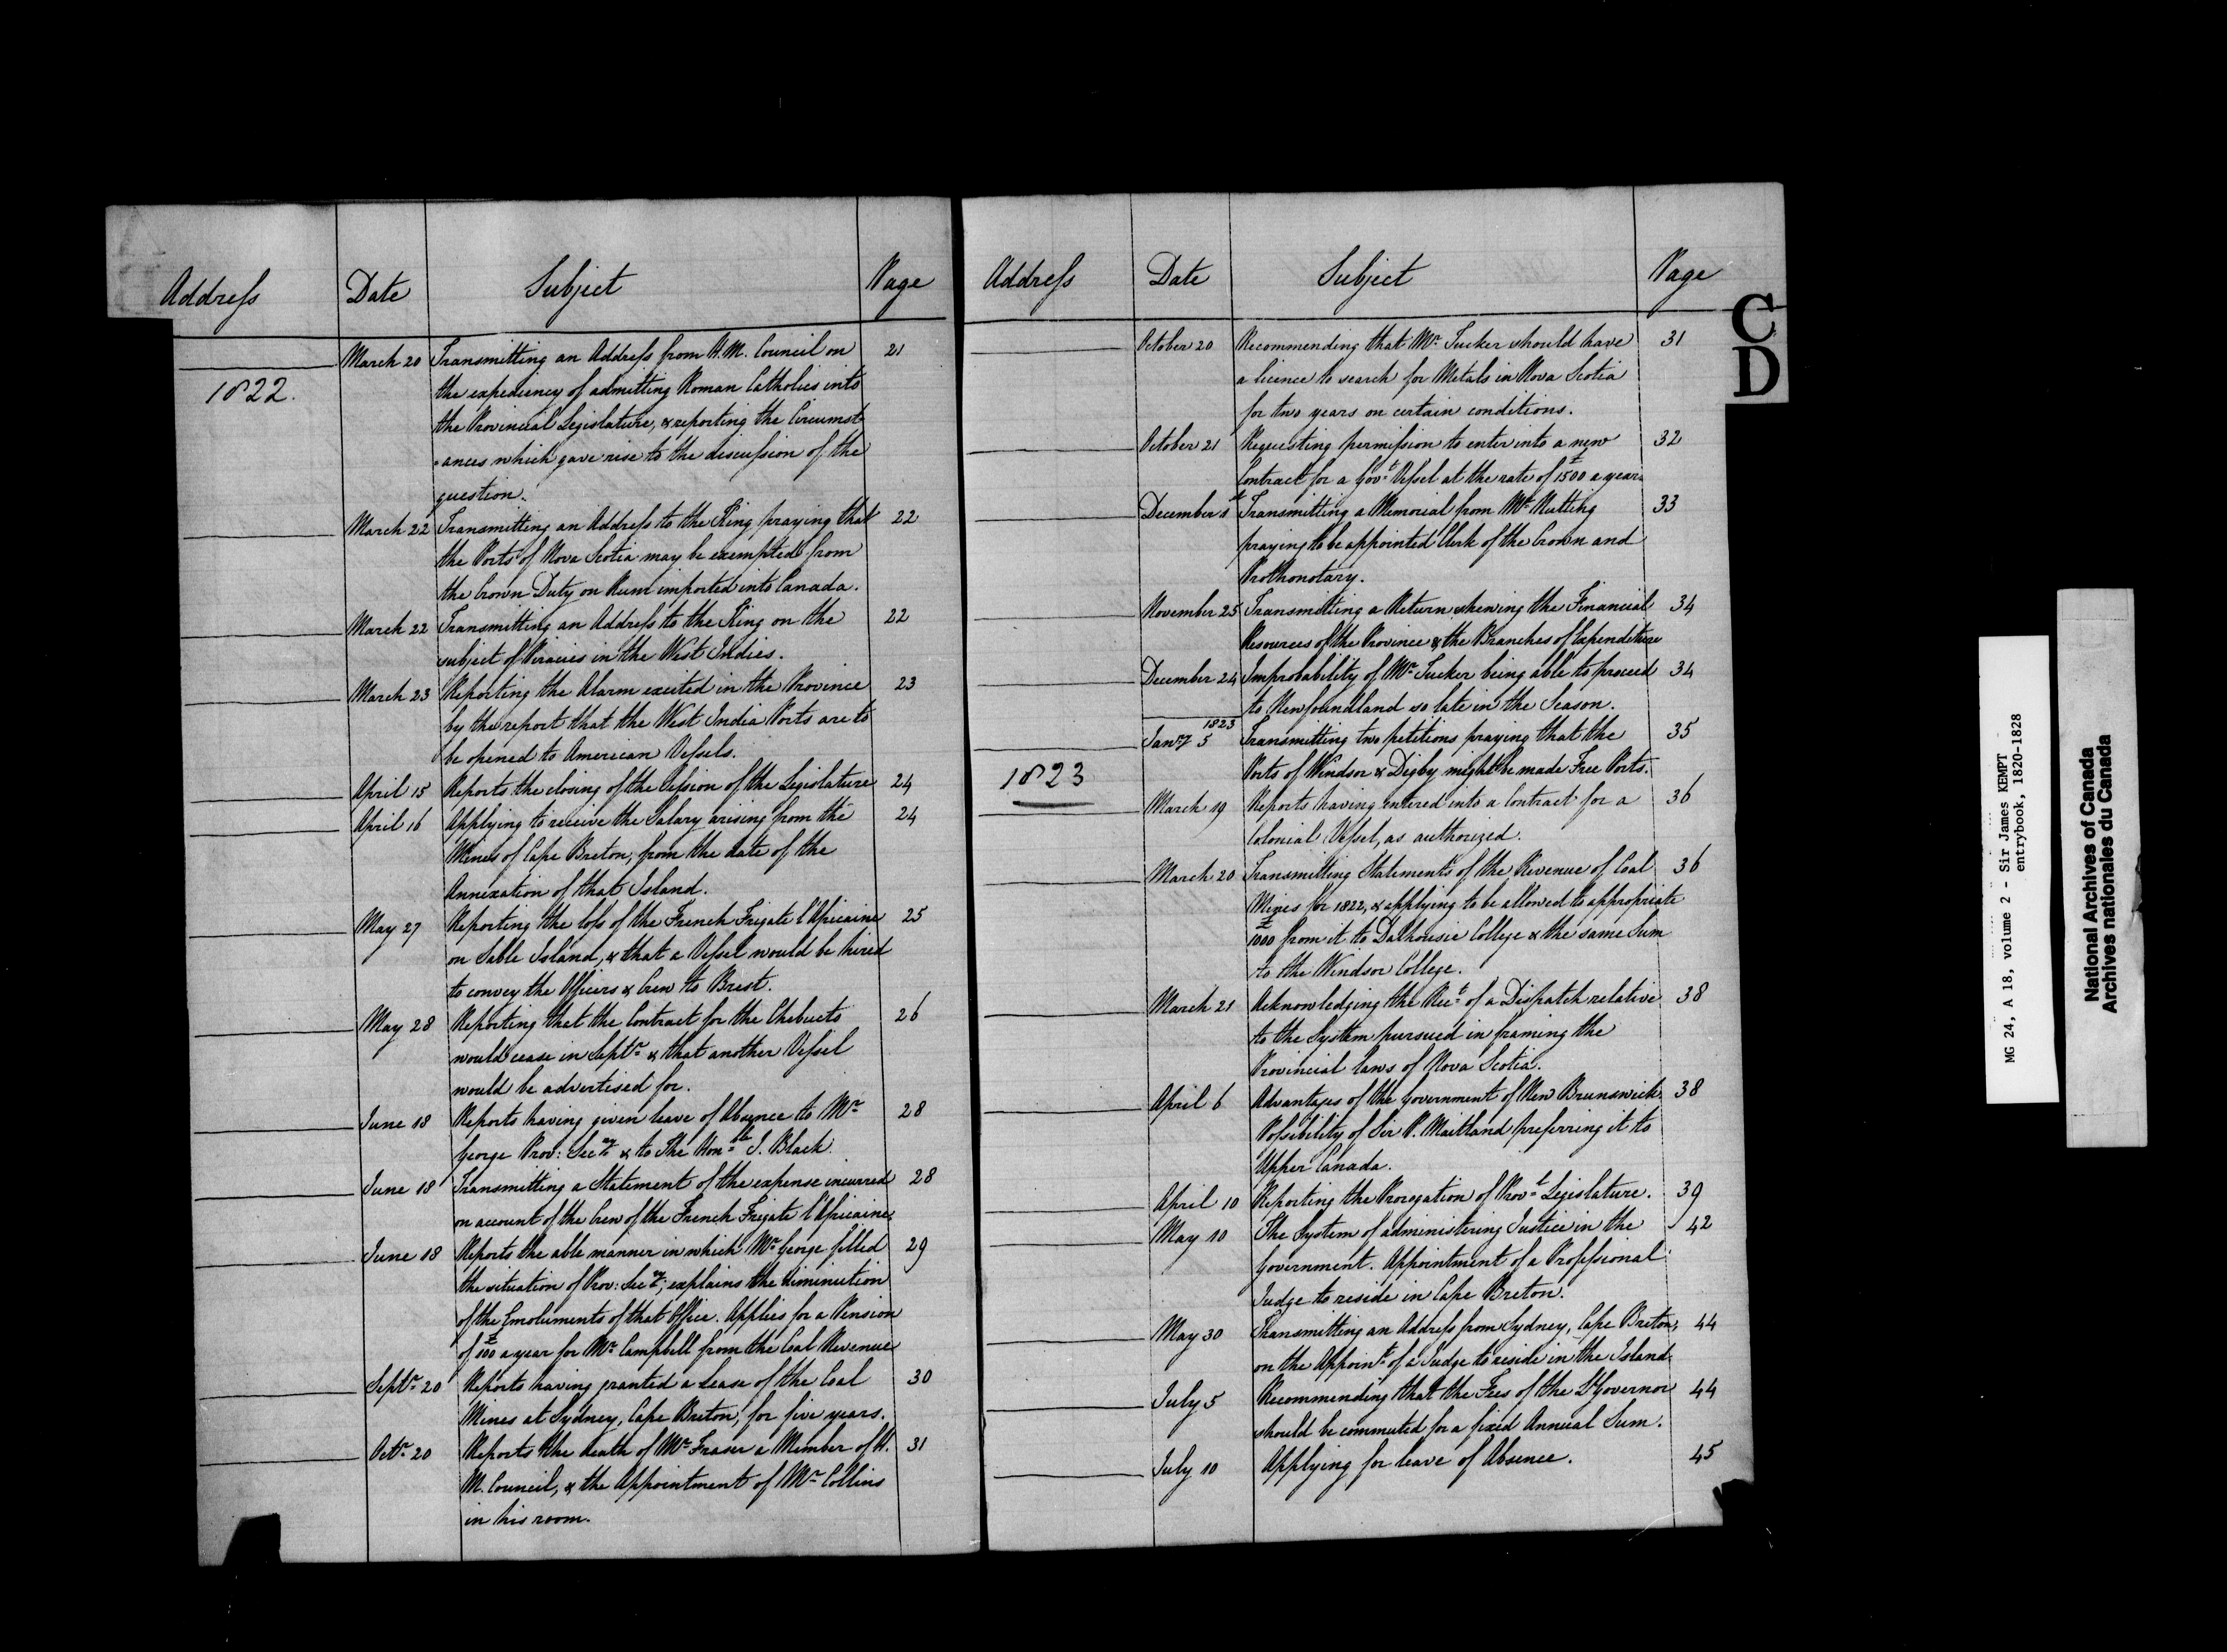 Address Date Subject Page
March 20 Transmitting an Address from H.M. Council on 21
1822. the expediency of admitting Roman Catholics into
the Provincial Legislature, & reporting the Circumst
=ances which gave rise to the discussion of the
question.
March 22 Transmitting an Address to the King praying that 22
the Ports of Nova Scotia may be exempted from
the Crown Duty on Rum imported into Canada.
March 22 Transmitting an Address to the King on the 22
subject of Piracies in the West Indies.
March 23 Reporting the Alarm excited in the Province 23
by the report that the West India Ports are to
be opened to American Vessels.
April 15 Reports the closing of the Session of the Legislature 24
April 16 Applying to receive the Salary arising from the 24
Mines of Cape Breton, from the date of the
Annexation of that Island.
May 27 Reporting the loss of the French Frigate l'Africaine 25
on Sable Island, & that a Vessel would be hired
to convey the Officers & Crew to Brest.
May 28 Reporting that the Contract for the Chebucto 26
would cease in Septr & that another Vessel
would be advertised for.
June 18 Reports having given leave of Absence to Mr 28
George Prov: Secy & to The Honble J. Black.
June 18 Transmitting a Statement of the expense incurred 28
on account of the Crew of the French Frigate l'Africaine
June 18 Reports the able manner in which Mr George filled 29
the situation of Prov: Secy; explains the diminution
of the Emoluments of that Office. Applies for a Pension
of £100 a year for Mr Campbell from the Coal Revenue
Septr 20 Reports having granted a Lease of the Coal 30
Mines at Sydney, Cape Breton, for five years.
Octr 20 Reports the death of Mr Fraser a Member of H. 31
M. Council, & the Appointment of Mr Collins
in his room.
Address Date Subject Page
C
D
October 20 Recommending that Mr Tucker should have 31
a licence to search for Metals in Nova Scotia
for two years on certain conditions.
October 21 Requesting permission to enter into a new 32
Contract for a Govt Vessel at the rate of £1500 a year
December 1st Transmitting a Memorial from Mr Nutting 33
praying to be appointed Clerk of the Crown and
Prothonotary.
November 25 Transmitting a Return shewing the Financial 34
Resources of the Province & the Branches of Expenditure
December 24 Improbability of Mr Tucker being able to proceed 34
to Newfoundland so late in the Season.
1823
Jany 5 Transmitting two petitions praying that the 35
1823 Ports of Windsor & Digby might be made Free Ports.
March 19 Reports having entered into a Contract for a 36
Colonial Vessel, as authorized.
March 20 Transmitting Statements of the Revenue of Coal 36
Mines for 1822, & applying to be allowed to appropriate
£1000 from it to Dalhousie College & the same Sum
to the Windsor College.
March 21 Acknowledging the Rect of a Dispatch relative 38
to the System pursued in framing the
Provincial laws of Nova Scotia.
April 6 Advantages of the Government of New Brunswick 38
Possibility of Sir P. Maitland preferring it to
Upper Canada.
April 10 Reporting the Prorogation of Provl Legislature. 39
May 10 The System of administering Justice in the 42
Government. Appointment of a Professional
Judge to reside in Cape Breton.
May 30 Transmitting an Address from Sydney, Cape Breton, 44
on the Appointt of a Judge to reside in the Island
July 5 Recommending that the Fees of the Lt Governor 44
should be commuted for a fixed Annual Sum.
July 10 Applying for leave of Absence. 45
MG 24, A 18, volume 2 - Sir James KEMPT
entrybook, 1820-1828
National Archives of Canada
Archives nationales du Canada